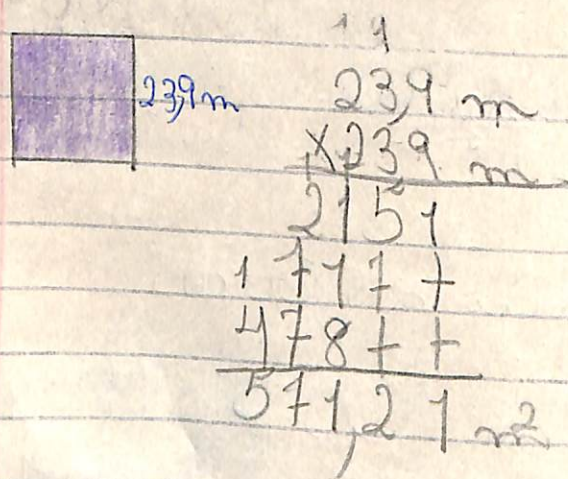 1 1
23,9 m
23,9 m
x 239 m
2151
1717+
478++
571,21 m²